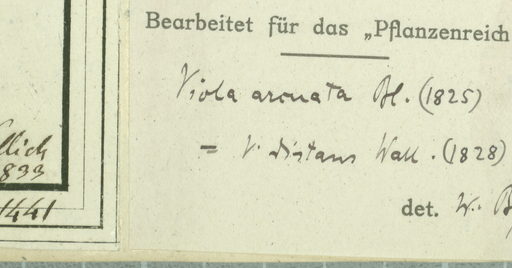 Bearbeitet für das „Pflanzenreich
Viola arcuata Bl. (1825)
= V. distans Wall. (1828)
det. W. B
llich
833
1441